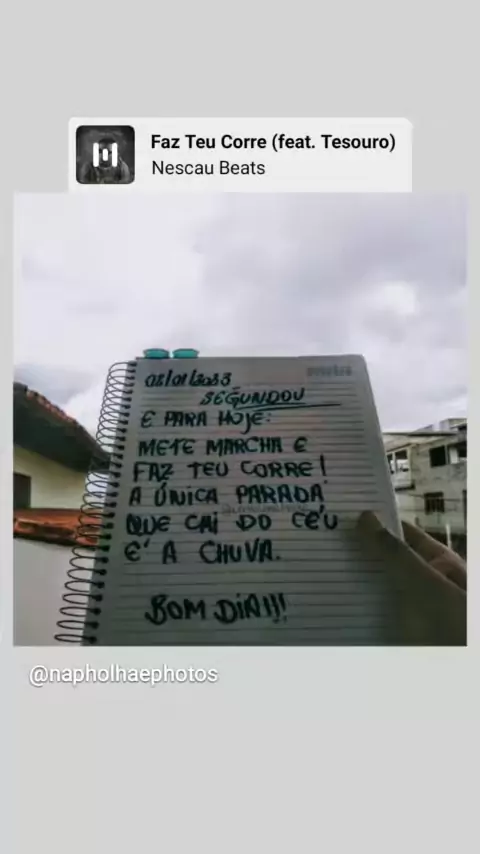 Faz Teu Corre (feat. Tesouro)
Nescau Beats
SEGUNDOU
E PARA HOJE:
METE MARCHA E
FAZ TEU CORRE!
A ÚNICA PARADA
QUE CAI DO CÉU
E' A CHUVA.
BOM DIA!!!
@napholhaephotos